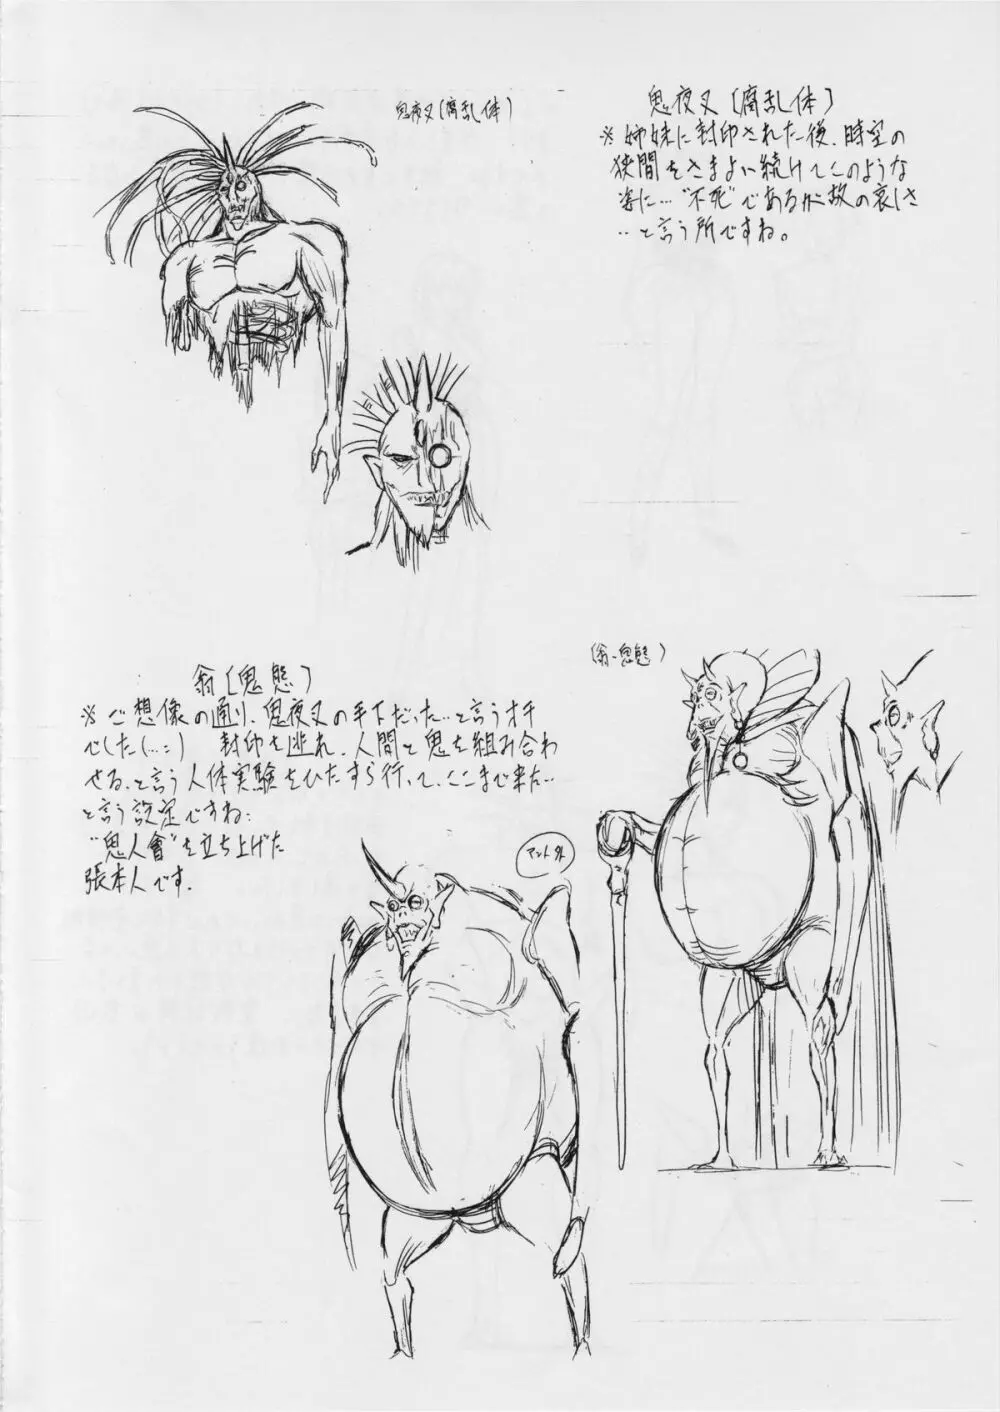 鬼夜叉〔腐乱体〕
鬼夜叉〔腐乱体〕
※姉妹に封印された後、時空の
狭間をさまよい続けてこのような
姿に…“不死”であるが故の哀しさ
‥と言う所ですね。
翁〔鬼態〕
※ご想像の通り、鬼夜叉の手下だった‥と言うオチ
でした(…;) 封印を逃れ、人間と鬼を組み合わ
せる、と言う人体実験をひたすら行って、ここまで来た‥
と言う設定ですね;
“鬼人會”を立ち上げた
張本人です.
(翁・鬼態)
マント外